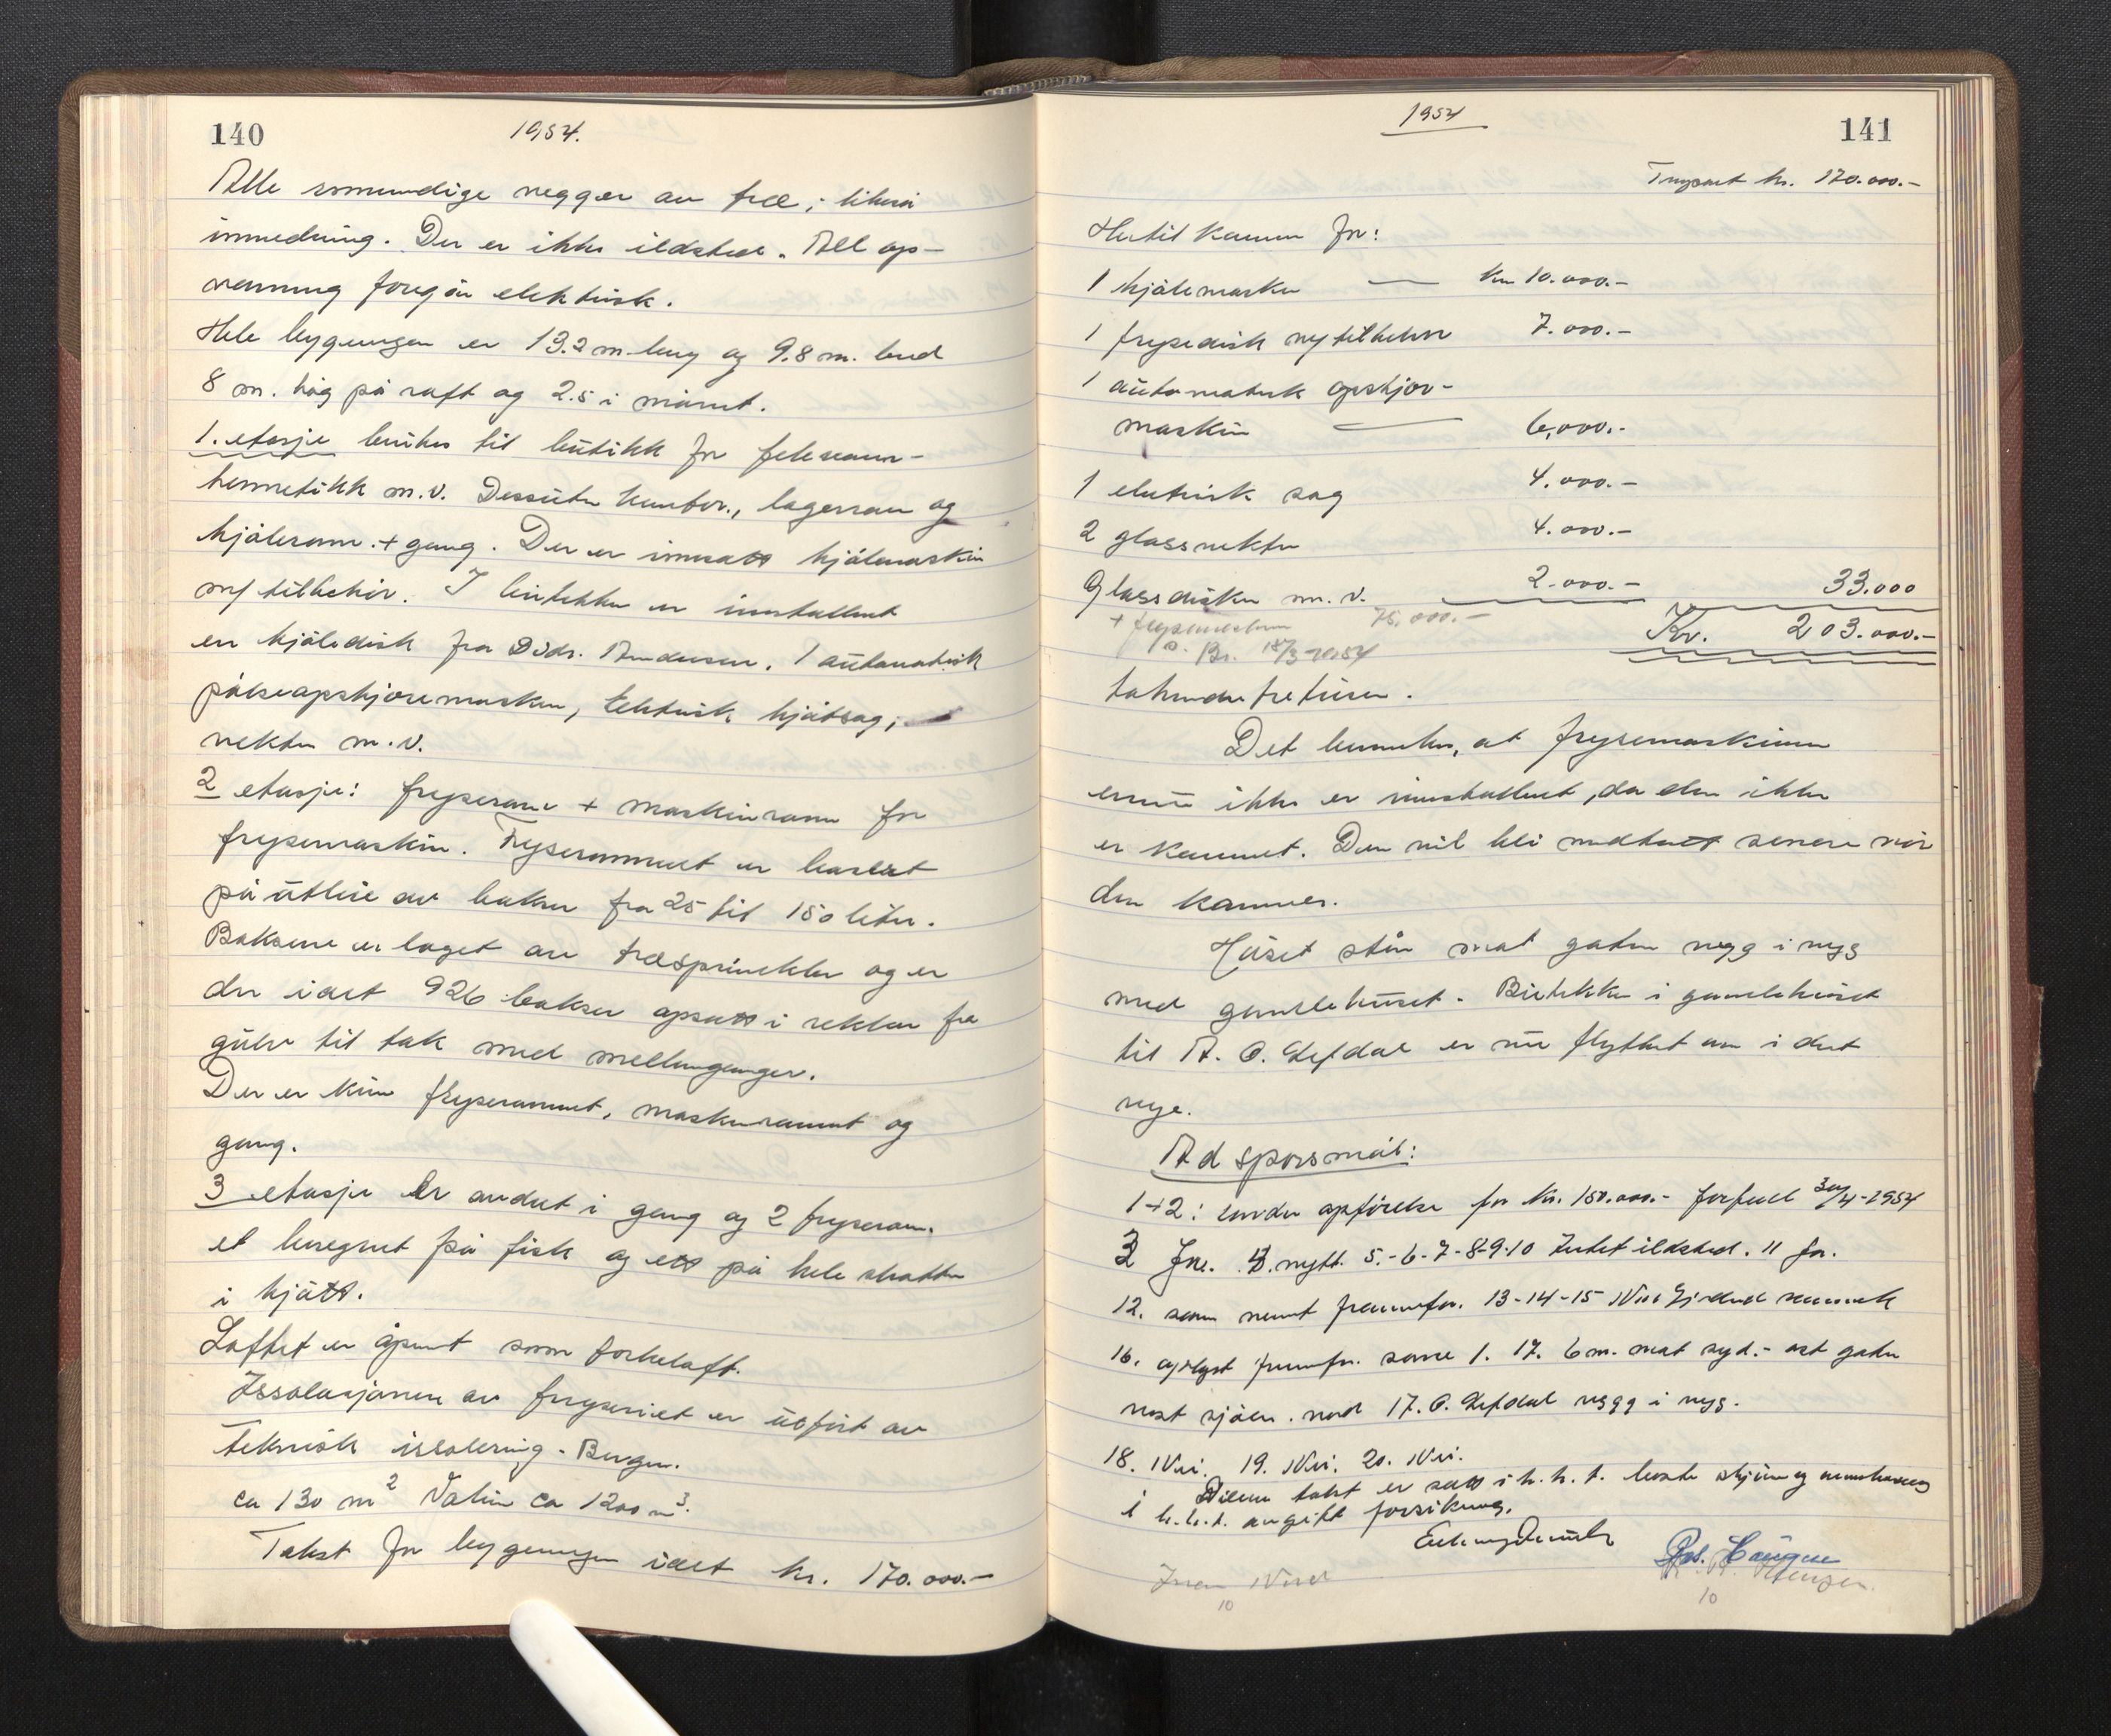 140
1954.
Alle romundige vegger av træ; likeså
innredning. Der er ikke ildsted. All op-
varming foregår elektrisk.
Hele bygningen er 13.2 m. lang og 9.8 m. bred
8 m. høg på raft og 2.5 i mønet.
1. etasje brukes til butikk for fetevarer-
hermetikk m.v. Dessuten kontor., lagerrom og
kjølerom. + gang. Der er innsatt kjølemaskin
m/ tilbehør. I butikken er innstallert
en kjøledisk fra Brdr. Andersen. 1 automatisk
pølseopskjæremaskin, elektrisk kjøtsag,
vekter m.v.
2 etasje: fryserom + maskinrom for
frysemaskin. Fryserommet er basert
på utleie av bokser fra 25 til 150 liter.
Boksene er laget av træsprinkler og er
der idet 926 bokser opsatt i rekker fra
gulv til tak med mellomganger.
Der er kun fryserommet, maskinrommet og
gang.
3 etasje er inndelt i gang og 2 fryserom.
et beregnet på fisk og ett på hele slakter
i kjøtt.
Loftet er åpent som tørkeloft.
Issolasjonen av fryseriet er utført av
Teknisk issolering - Bergen.
ca 130 m2 Volum ca 1200 m3.
Takst for bygningen idet kr. 170.000.-
1954
141
Transport kr. 170.000.-
Hertil kommer for:
1 kjølemaskin — kr 10.000.-
1 frysedisk m/tilbehør 7.000.-
1 automatisk opskjær-
maskin — 6.000.-
1 elektrisk sag 4.000.-
2 glassvekter 4.000.-
Glassdisker m.v. 2.000.- 33.000
+ frysemaskin 75.000.- Kr. 203.000.-
Br. 18/3-1954
tohundreogtretusen.
Det bemerkes, at frysemaskinen
ennu ikke er innstallert, da den ikke
er kommet. Den vil bli medtatt senere når
den kommer.
Huset står mot gaten vegg i vegg
med gamlehuset. Butikken i gamlehuset
til A. O. Lefdal er nu flyttet om i det
nye.
Ad spørsmål:
1+2: under opførelse for kr. 150.000.- forfall 30/4-1954
3 Jne. 4. nytt. 5.-6-7-8-9-10 Intet ildsted. 11 Jn.
12. som nevnt fremmfor. 13-14-15 Nei
16. oplyst fremfor. same 1. 17. 6 m. mot syd.- ost gaten
vest sjøen. nord A. O. Lefdal vegg i vegg.
18. Nei. 19. Nei. 20. Nei.
Denne takst er satt i h. h. t. beste skjønn og
i h.h.t. avgitt forsikring.
10
10